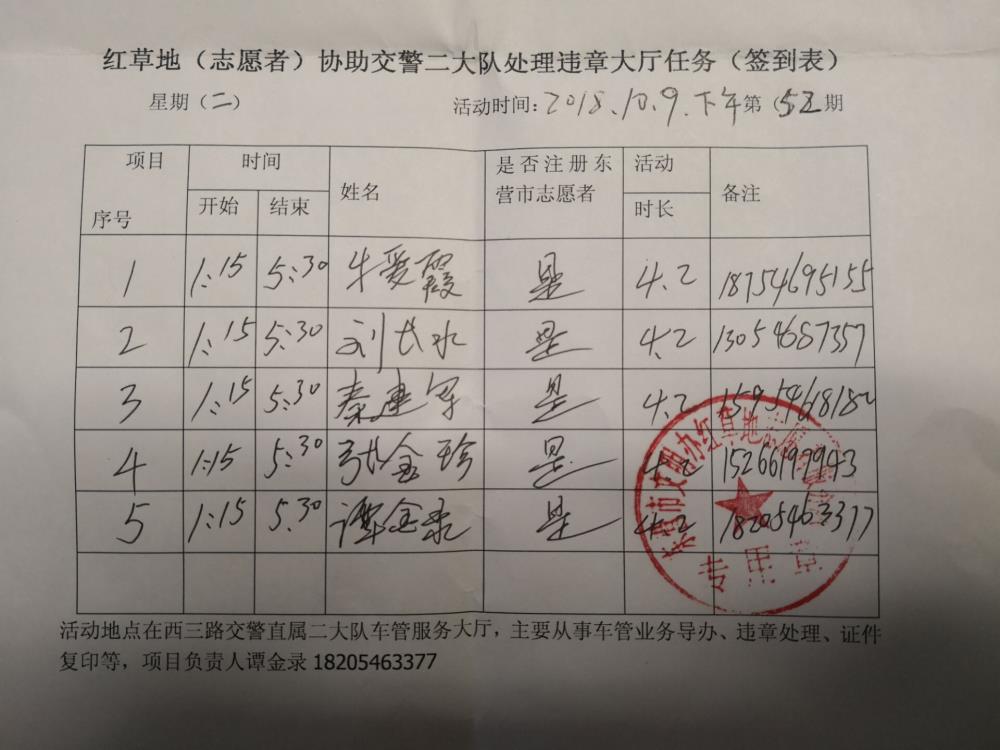 红草地（志愿者）协助交警二大队处理违章大厅任务（签到表）
星期（二） 活动时间：2018.10.9.下午第（52期
项目 时间 姓名 是否注册东营市志愿者 活动时长 备注
序号 开始 结束
1 1:15 5:30 牛爱霞 是 4.2 18754695155
2 1:15 5:30 刘长水 是 4.2 13054687357
3 1:15 5:30 秦建军 是 4.2 15954618182
4 1:15 5:30 张金珍 是 4.2 15266199943
5 1:15 5:30 谭金录 是 4.2 18205463377
东营市文明办红草地志愿
专用章
活动地点在西三路交警直属二大队车管服务大厅，主要从事车管业务导办、违章处理、证件
复印等，项目负责人谭金录 18205463377